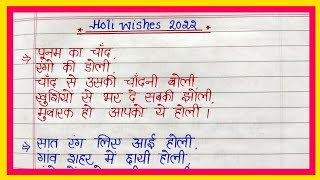 Holi wishes 2022
→ पूनम का चाँद,
रंगो की डोली,
चाँद से उसकी चाँदनी बोली,
खुशियों से भर दे सबकी झोली,
मुबारक हो आपको ये होली।
→ सात रंग लिए आई होली,
गाव शहर में छायी होली,